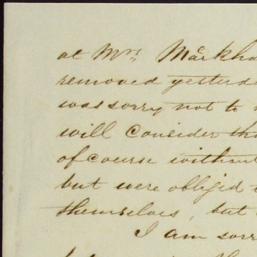 at Mrs. Markha
removed yesterda
was sorry not to
will consider tha
of course without
but were obliged
themselves, but
I am sorr